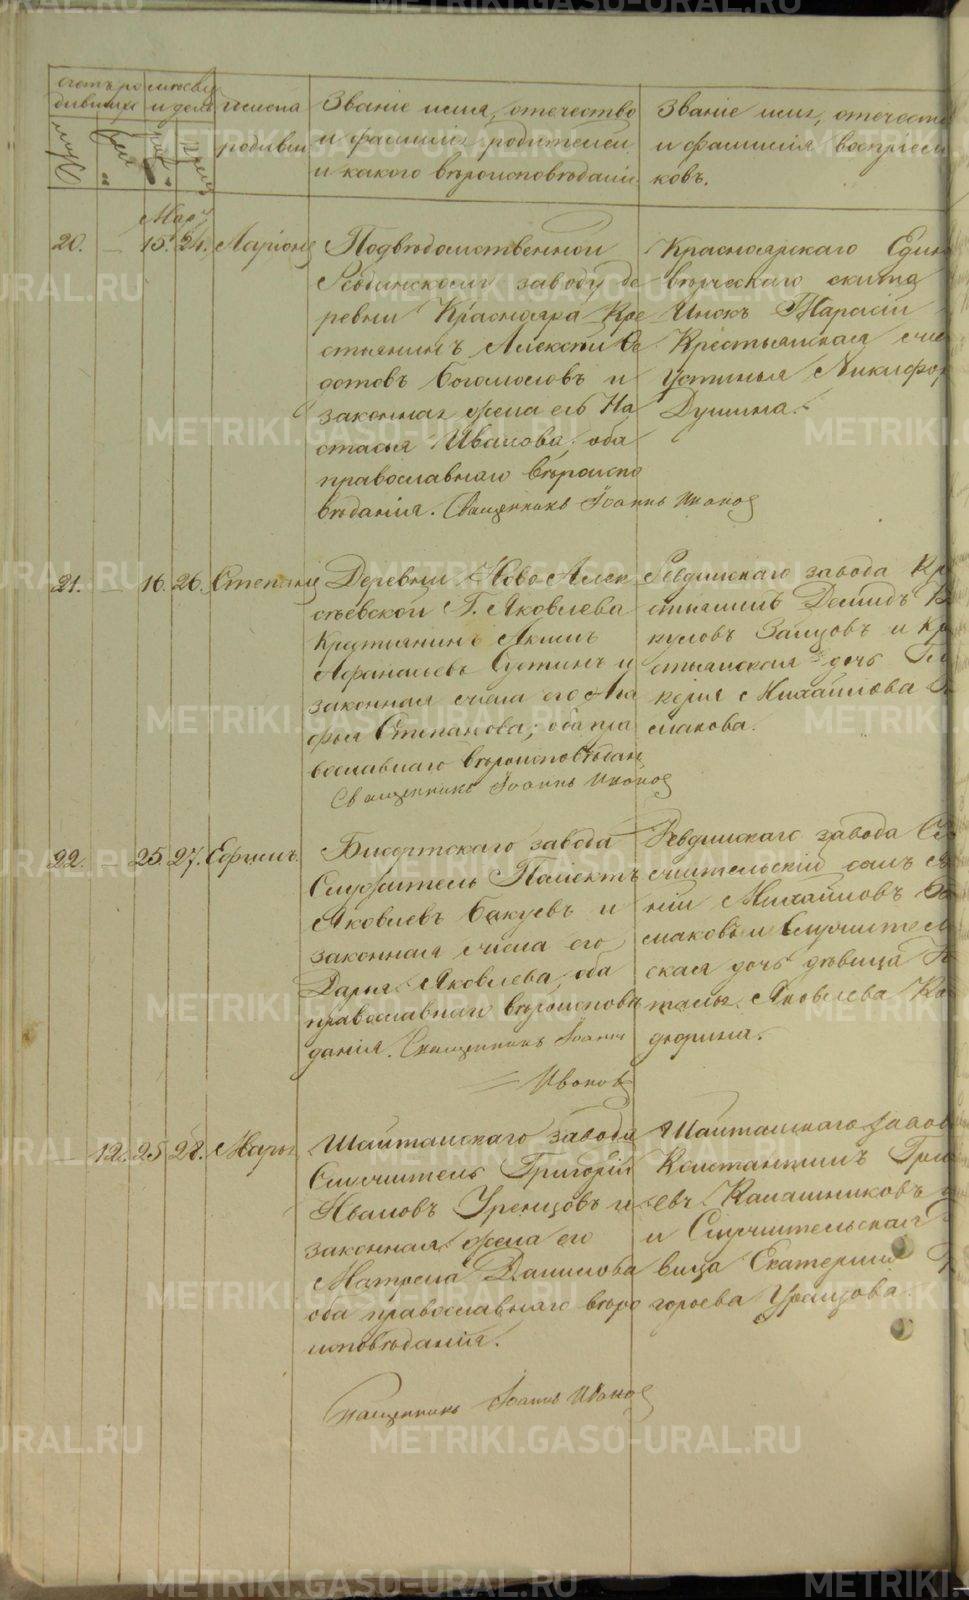 Счетъ ро
дившихся
Месяц
и день
Имена
родивши
Званіе имя, отечество
и фамилія родителей
и какого вѣроисповѣданія
Званіе имя, отечество
и фамилія воспріем
ковъ.
Мартъ
20. — 15. 24. Ларіонъ
Подвѣдомственной
Ревдинскому заводу де
ревни Краснояра Кре
стьянинъ Алексѣй Ѳе
дотовъ Богомоловъ и
законная жена его На
стасья Иванова, оба
православнаго вѣроиспо
вѣданія. Священникъ Іоаннъ Ивановъ
Красноярскаго Един
вѣрческаго скита
Инокъ Тарасій
Крестьянская
Устинья Никифор
Душина.
21. — 16. 26. Степанъ
Деревни Ново Алек
сѣевской Г. Яковлева
Крестьянинъ Акимъ
Афанасьевъ Устинъ и
законная жена его Ага
фья Степанова; оба пра
вославнаго вѣроисповѣдан
Священникъ Іоаннъ Ивановъ
Ревдинскаго завода Кр
стьянинъ Демидъ
куловъ Заицовъ и Кр
стьянская дочь Гли
керія Михайлова
макова.
22. 25. 27. Ефимъ.
Бисертскаго завода
Служитель Полектъ
Яковлевъ Бакуевъ и
законная жена его
Дарья Яковлева, оба
православнаго вѣроисповѣ
данія. Священникъ Іоаннъ
Ивановъ
Ревдинскаго завода Сл
ужительскій сынъ
ній Михайловъ
маковъ и Служител
ская дочь дѣвица
талья Яковлева Ка
дюрина.
12. 25 28. Марья
Шайтанскаго завода
Служитель Григорій
Ивановъ Уренцовъ и
законная жена его
Матрена Данилова
оба православнаго вѣро
исповѣданія.
Священникъ Іоаннъ Ивановъ
Шайтанскаго завод
Константинъ Григ
евъ Калашниковъ
и Служительская
вица Екатерина
горьева Уренцова.
METRIKI.GASO-URAL.RU